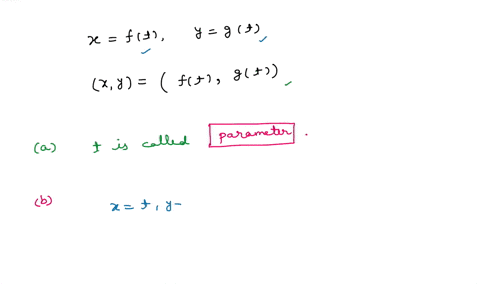 x = f(t), y = g(t)
(x,y) = ( f(t), g(t))
(a) t is called parameter.
(b) x = t, y-